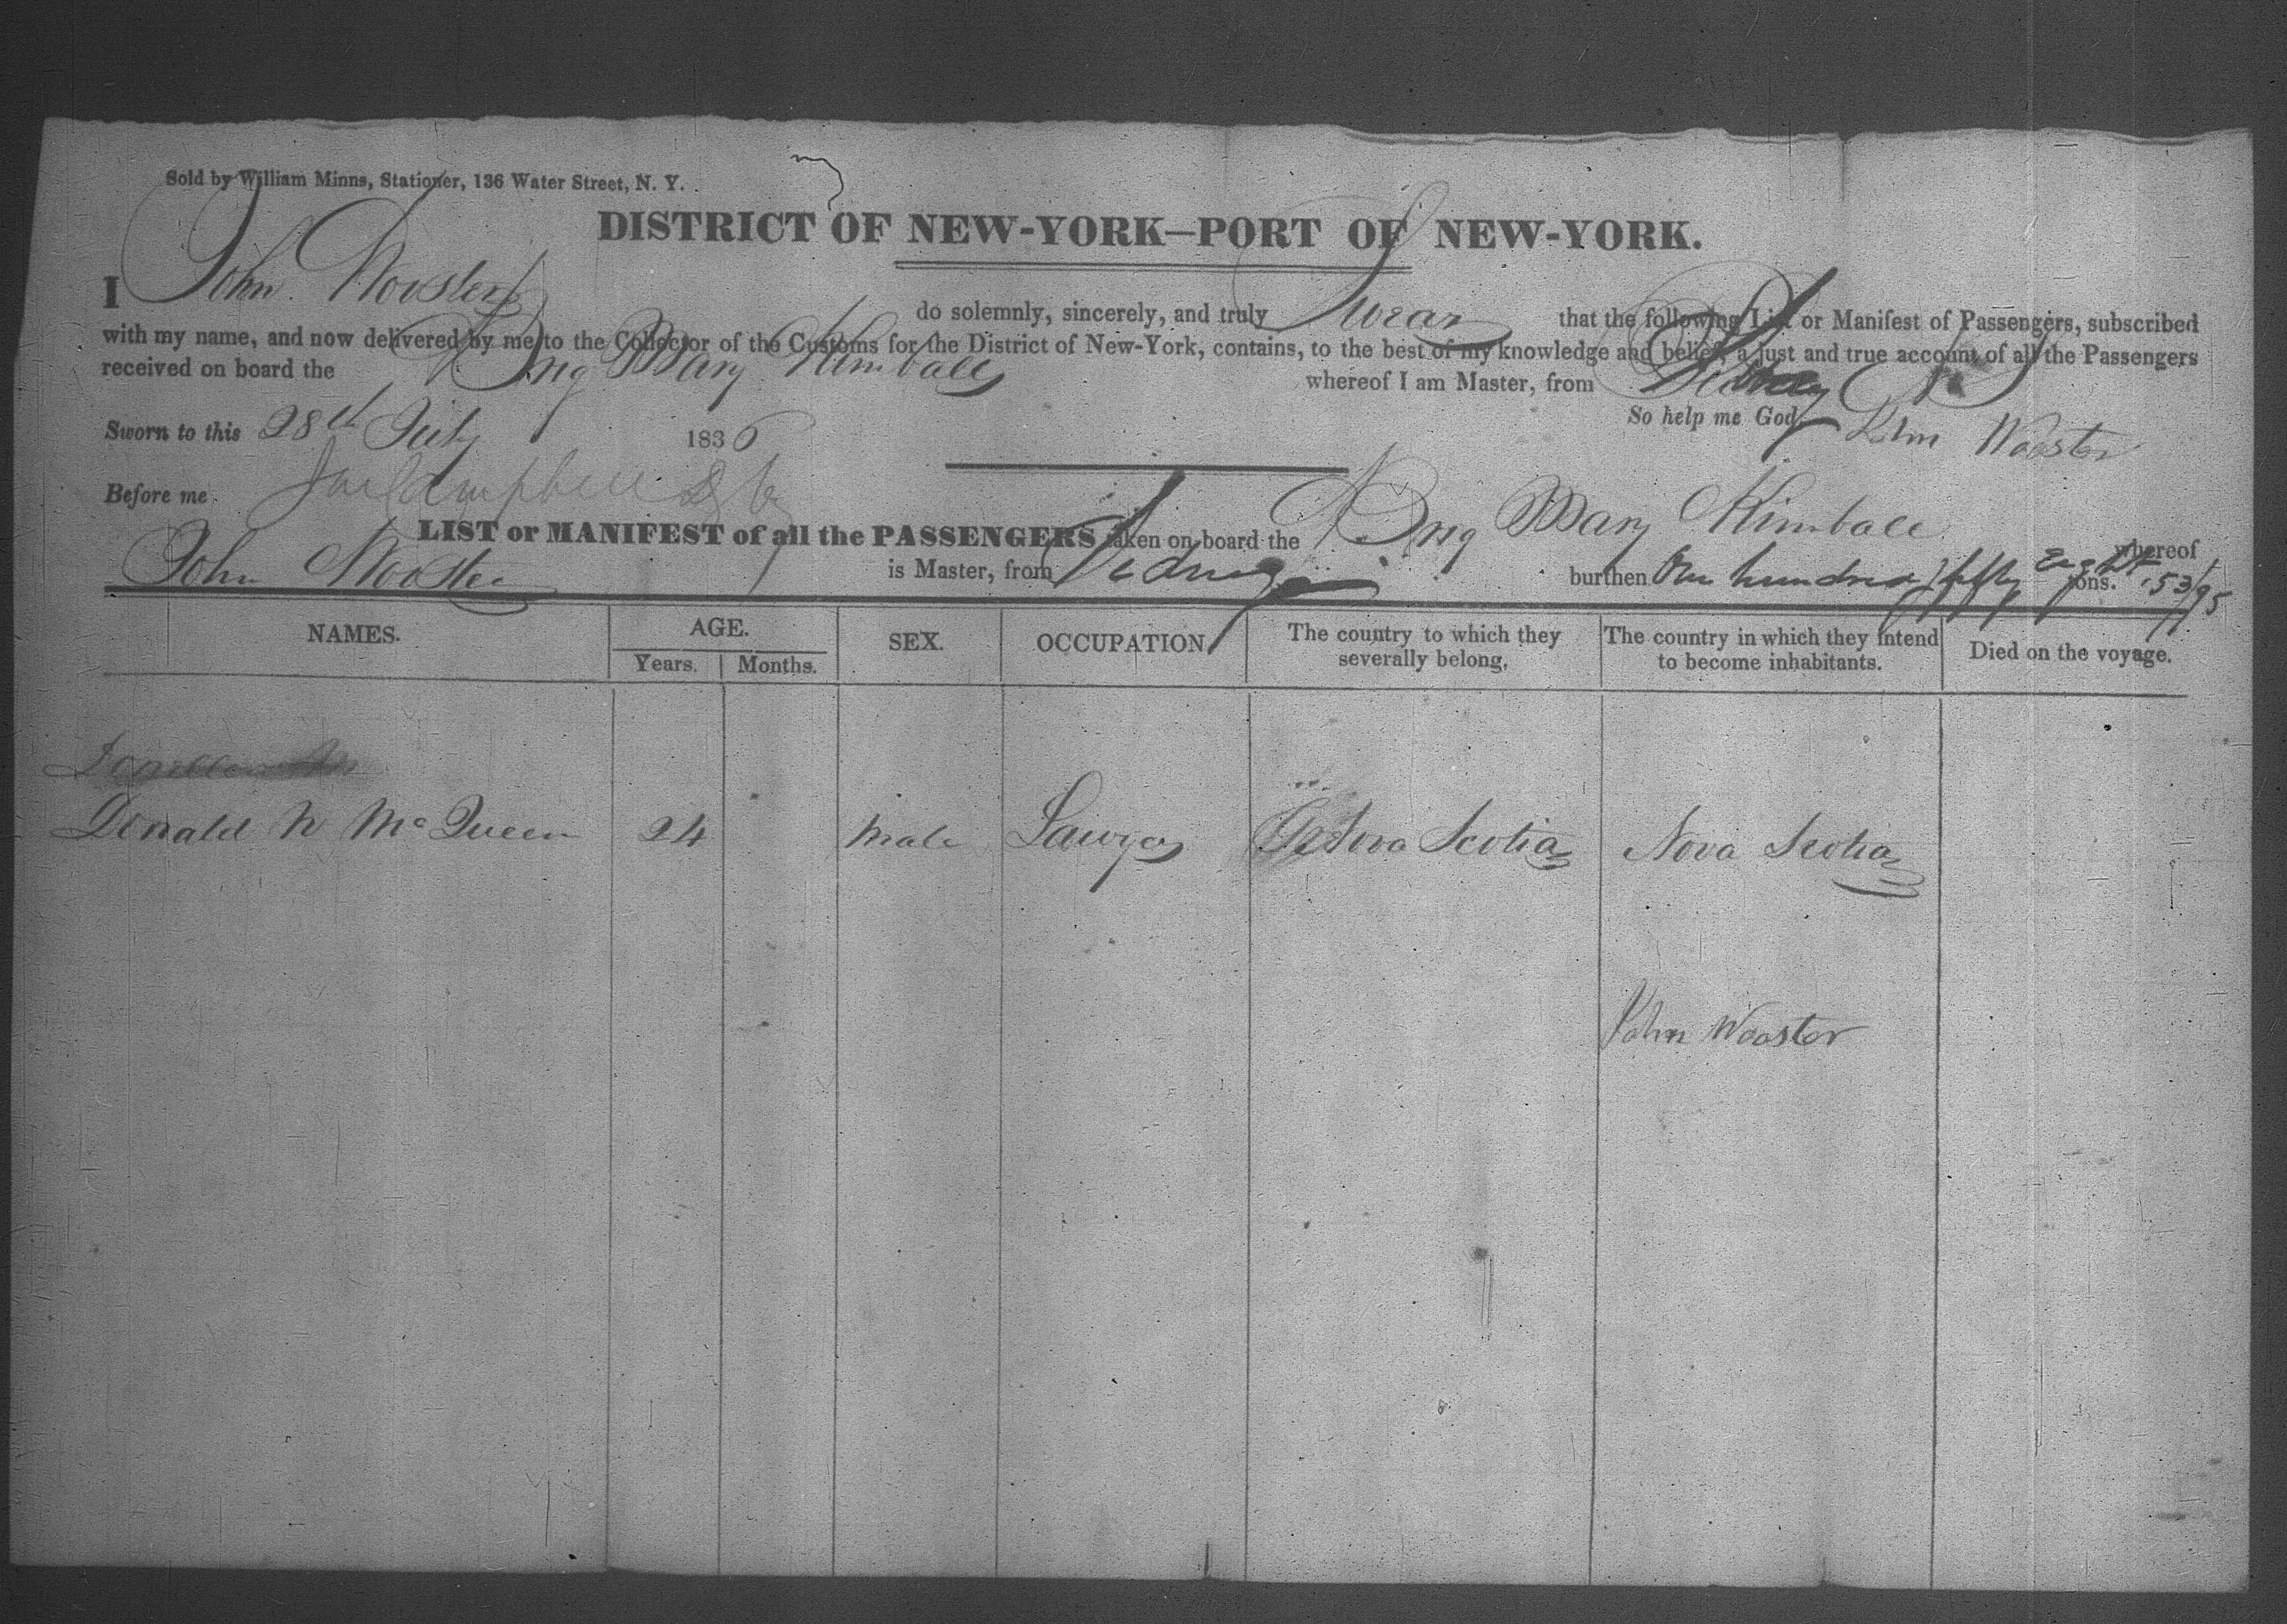 Sold by William Minns, Stationer, 136 Water Street, N. Y.
DISTRICT OF NEW-YORK—PORT OF NEW-YORK.
I John Wooster do solemnly, sincerely, and truly Swear that the following List or Manifest of Passengers, subscribed
with my name, and now delivered by me to the Collector of the Customs for the District of New-York, contains, to the best of my knowledge and belief, a just and true account of all the Passengers
received on board the Brig Mary Kimball whereof I am Master, from
Sworn to this 28th July 1836 So help me God. John Wooster
Before me Campbell
LIST or MANIFEST of all the PASSENGERS taken on board the Brig Mary Kimball whereof
John Wooster is Master, from Sidney burthen One hundred fifty Eight tons. 53/95
NAMES. AGE. SEX. OCCUPATION. The country to which they severally belong, The country in which they intend to become inhabitants. Died on the voyage.
Years. Months.
Donald N McQueen 24 Male Lawyer Nova Scotia Nova Scotia
John Wooster